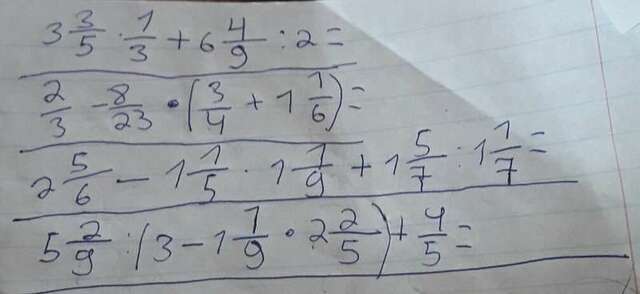 3 3/5 · 1/3 + 6 4/9 : 2 =
2/3 - 8/23 • (3/4 + 1 1/6) =
2 5/6 - 1 1/5 · 1 1/9 + 1 5/7 : 1 1/7 =
5 2/9 : (3 - 1 1/9 • 2 2/5) + 4/5 =